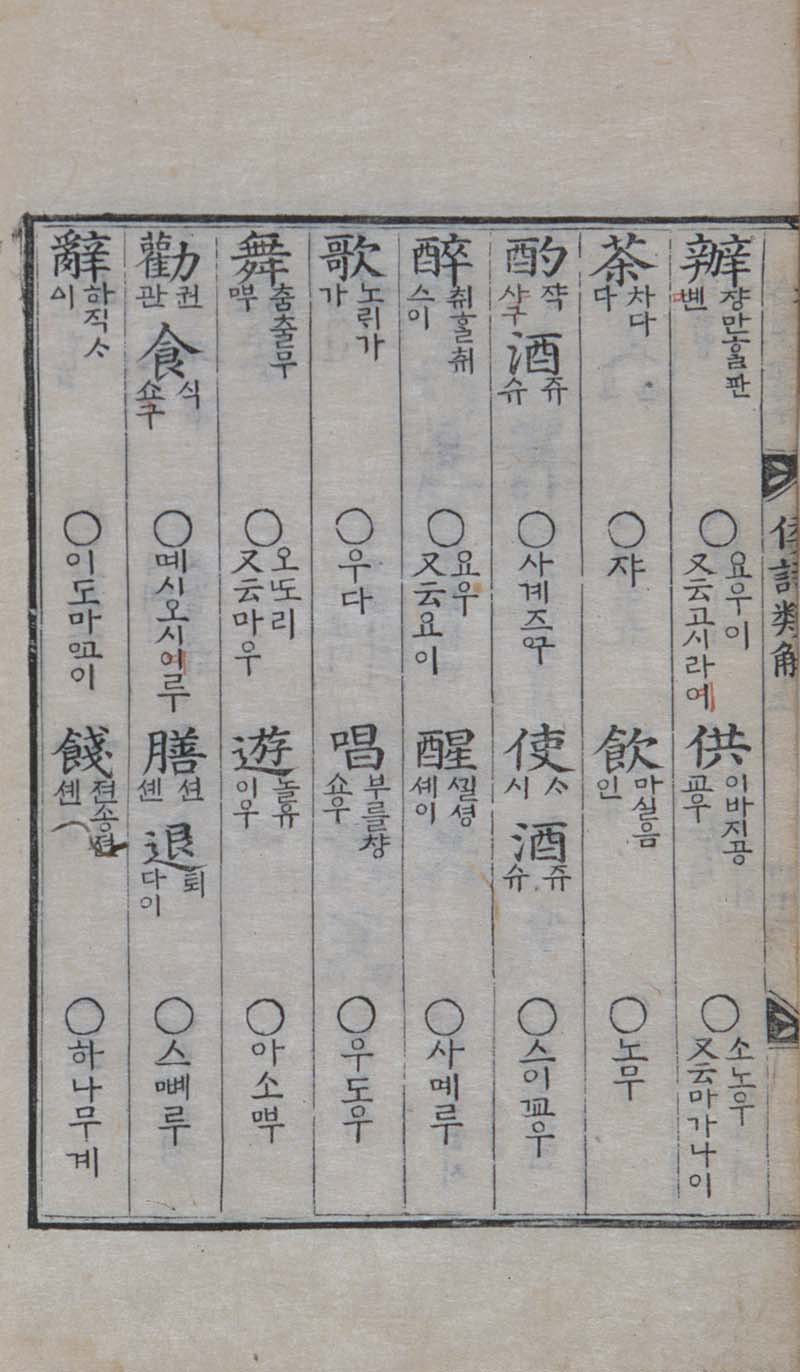 倭語類解
辦 쟝만ᄒᆞᆯ판 ○ 요우이 又云고시라예 供 이바지공 교우 ○ 소노우 又云마가나이
茶 차다 다 ○ 쟈 飮 마실음 인 ○ 노무
酌 쟉 샤구 酒 쥬 슈 ○ 사계즈 使 ᄉᆞ 시 酒 쥬 슈 ○ 스이ᅁ교우
醉 취ᄒᆞᆯ취 스이 ○ 요우 又云요이 醒 ᄭᆡᆯ셩 셰이 ○ 사몌루
歌 노ᄅᆡ가 가 ○ 우다 唱 부를챵 쇼우 ○ 우도우
舞 춤출무 ᄝᅮ ○ 오ᅂ도리 又云마우 遊 놀유 이우 ○ 아소ᄝᅮ
勸 권 관 食 식 쇼구 ○ 몌시오시이루 膳 션 셴 退 퇴 다이 ○ 스ᄝᅨ루
辭 하직ᄉᆞ 시 ○ 이도마ᅁ고이 餞 젼송젼 셴 ○ 하나무계